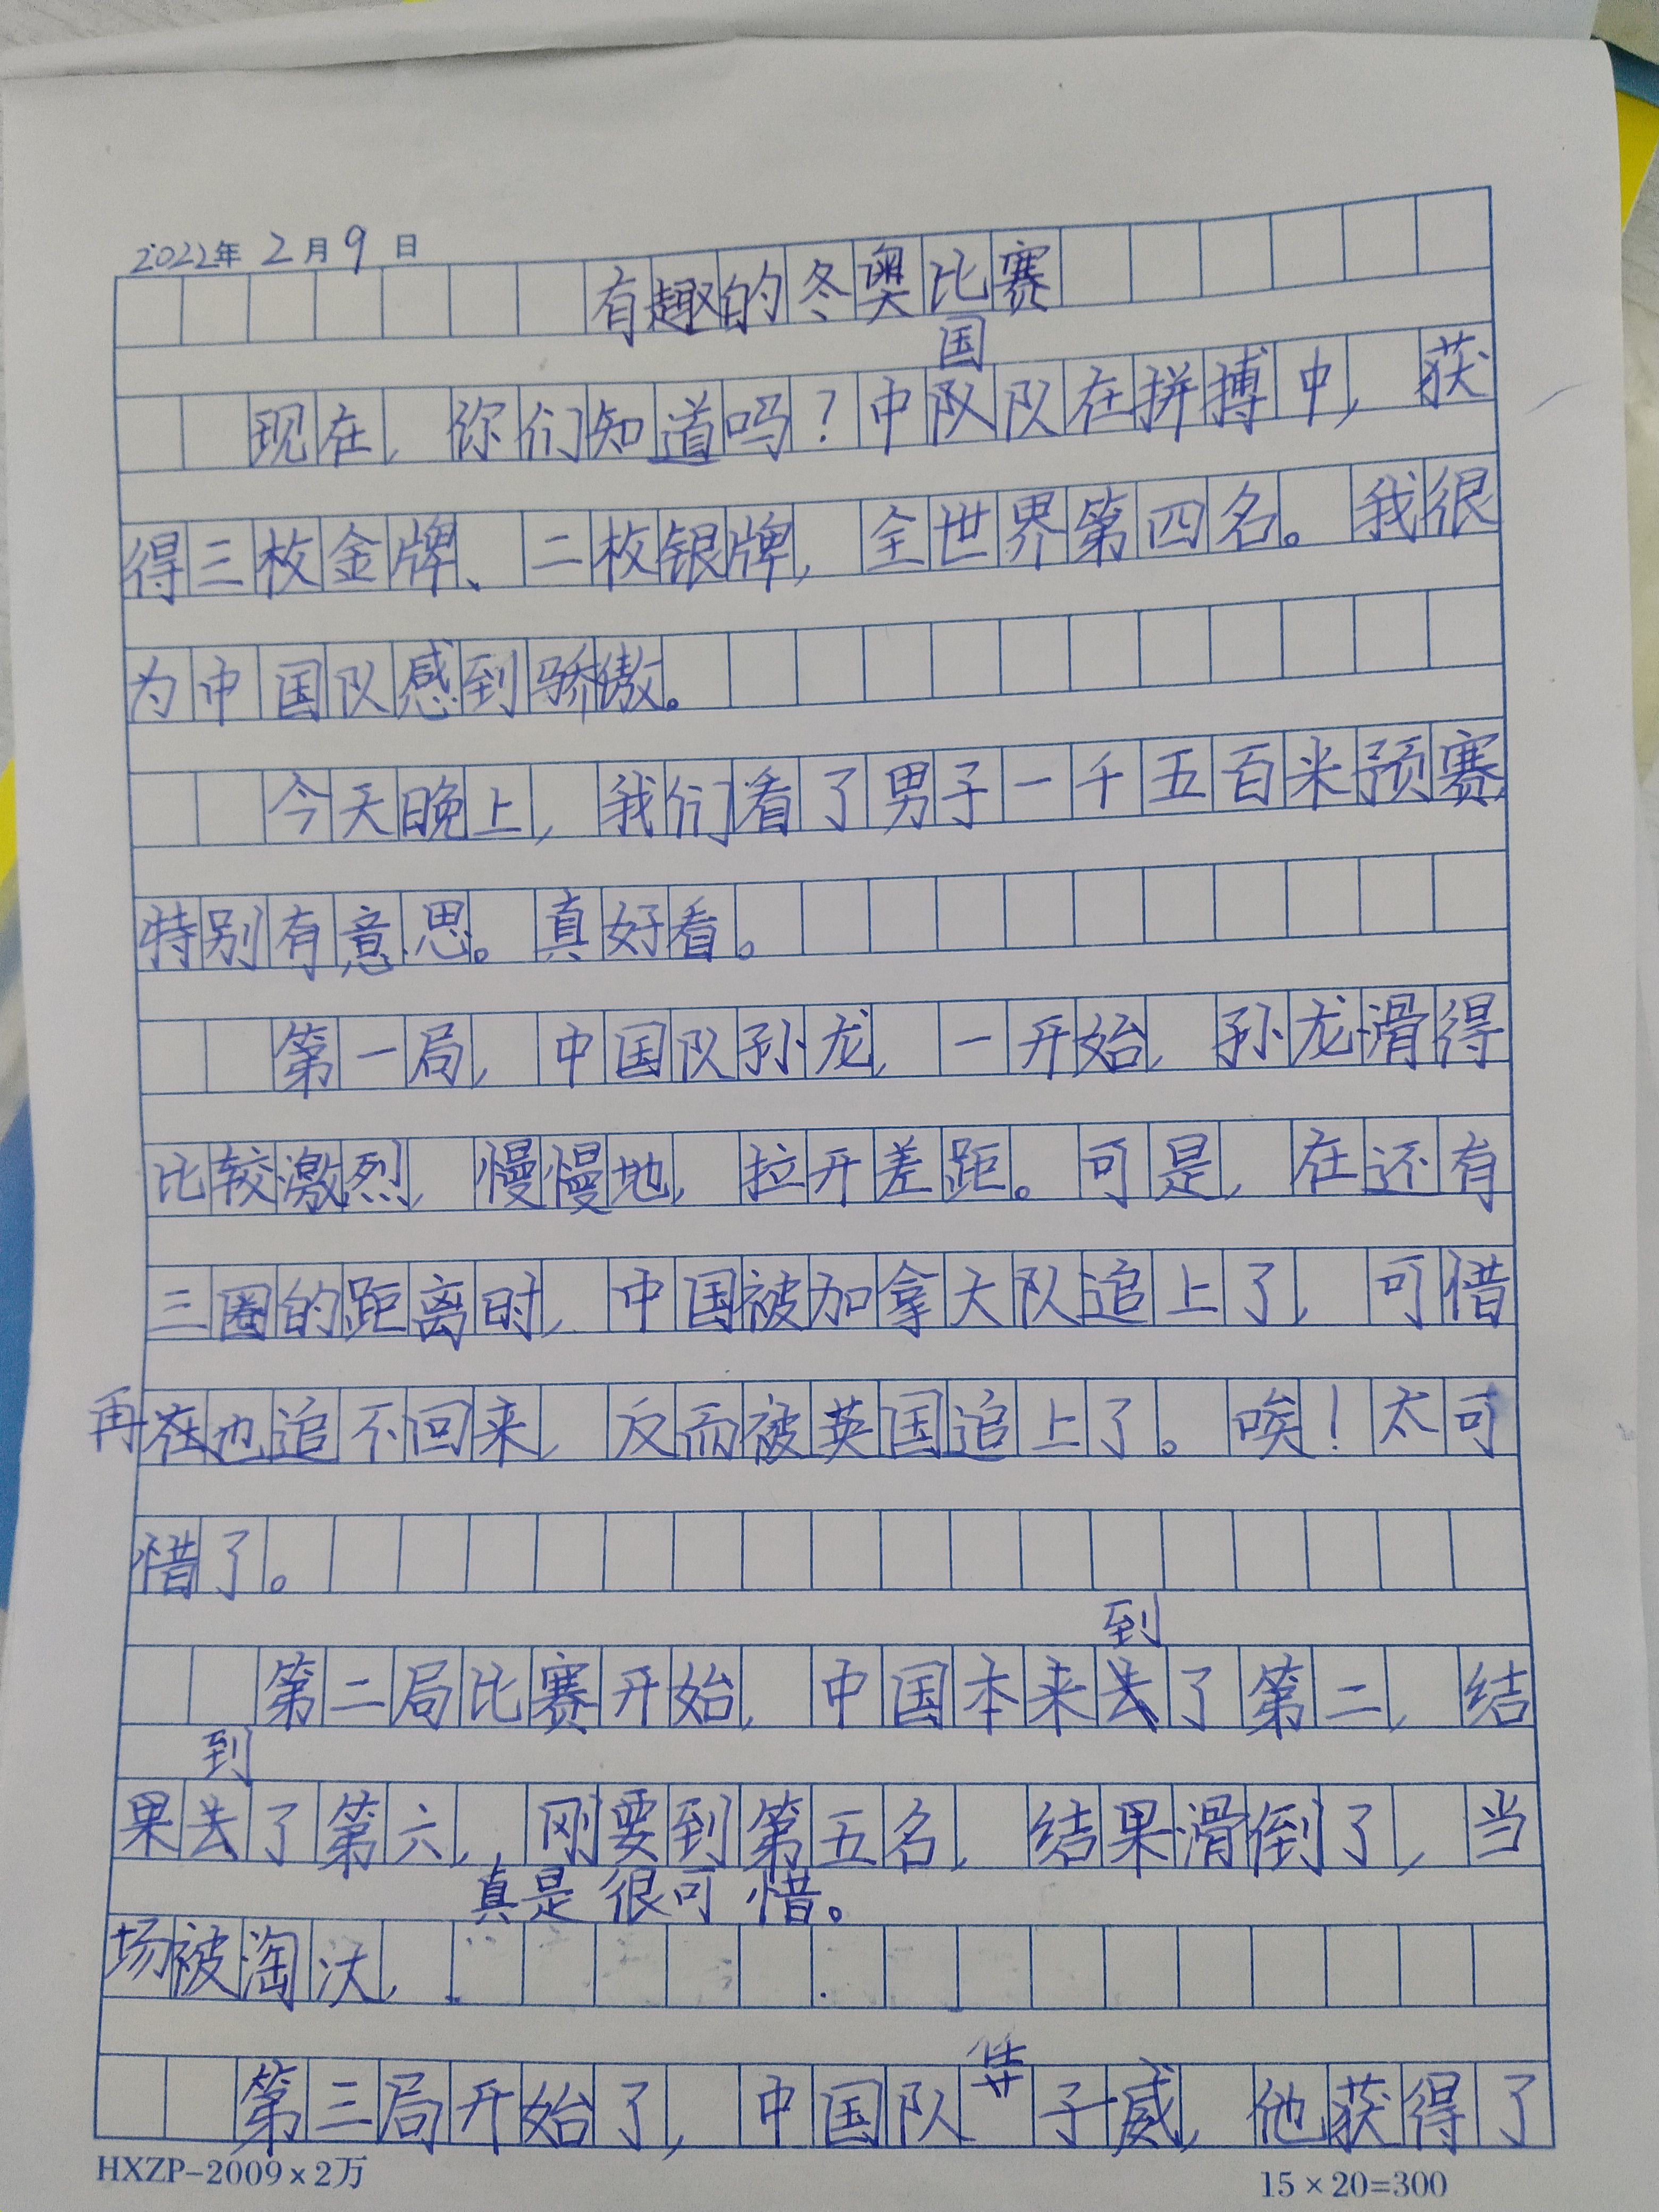 2022年 2月9日
有趣的冬奥比赛
国
现在，你们知道吗？中队队在拼搏中，获
得三枚金牌、二枚银牌，全世界第四名。我很
为中国队感到骄傲。
今天晚上，我们看了男子一千五百米预赛，
特别有意思。真好看。
第一局，中国队孙龙，一开始，孙龙滑得
比较激烈，慢慢地，拉开差距。可是，在还有
三圈的距离时，中国被加拿大队追上了，可惜
再在也追不回来，反而被英国追上了。唉！太可
惜了。
到
第二局比赛开始，中国本来去了第二，结
到
果去了第六，刚要到第五名，结果滑倒了，当
真是很可惜。
场被淘汰，
第三局开始了，中国队 子威，他获得了
HXZP-2009×2万
15×20=300